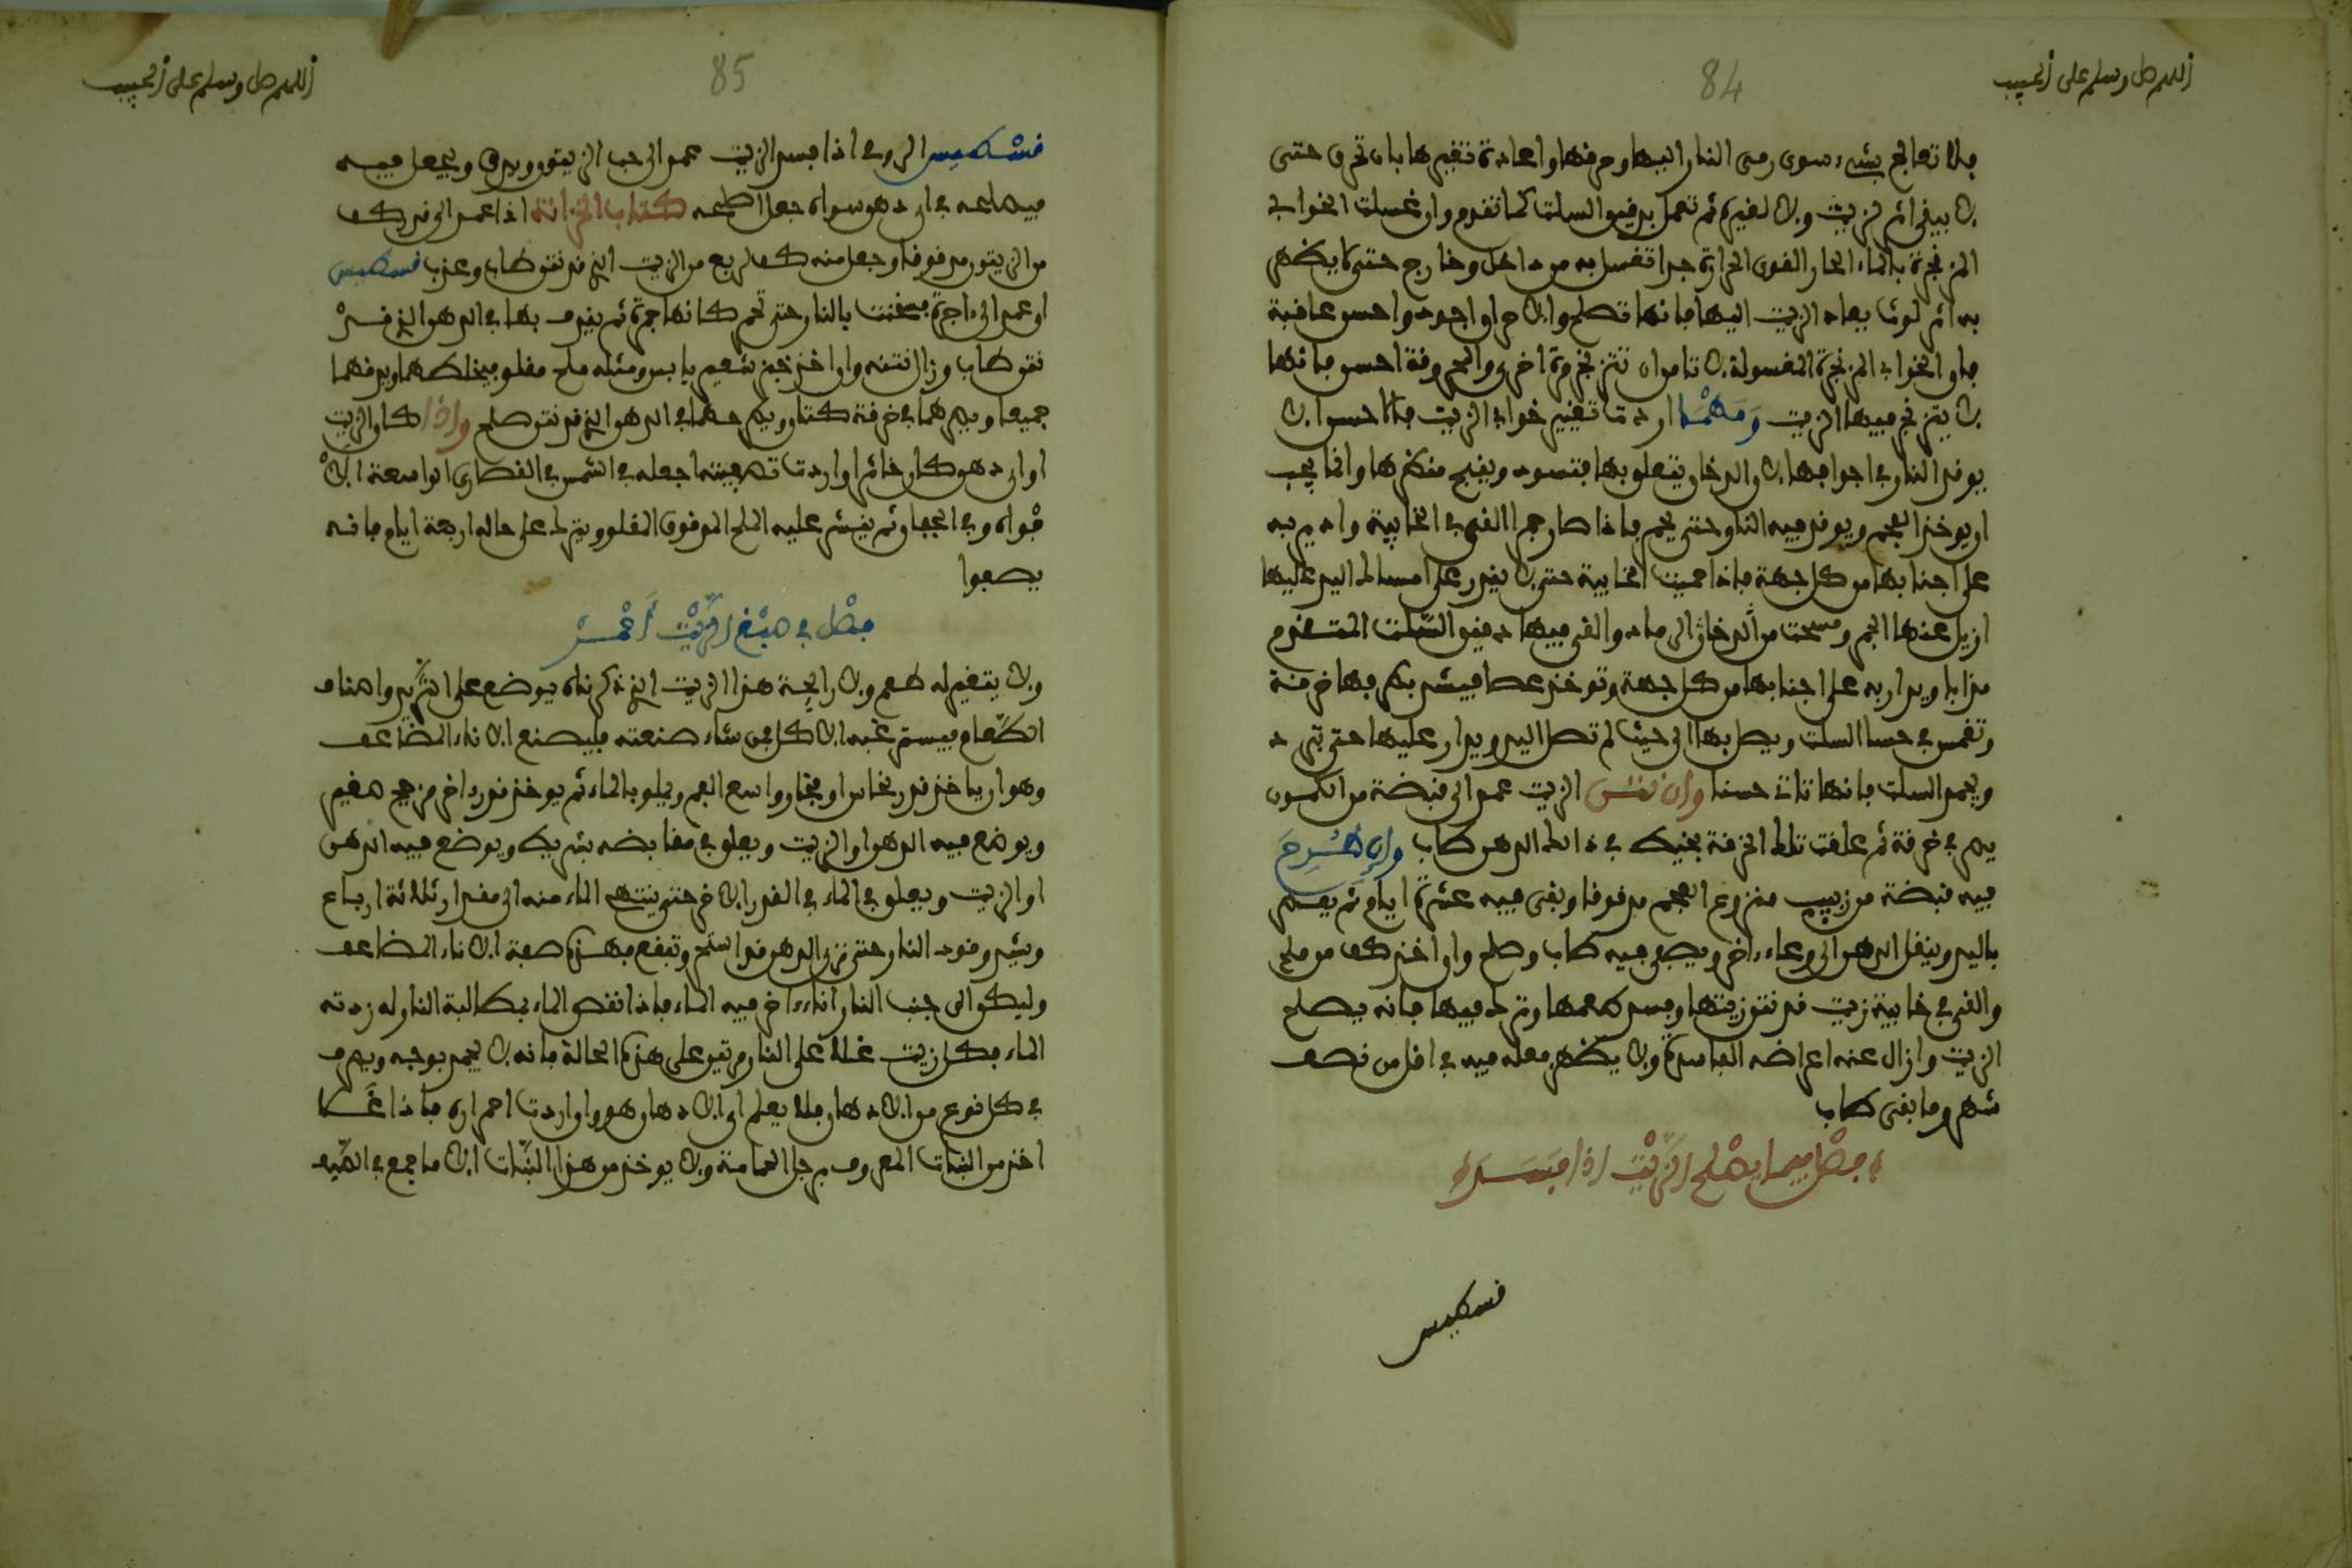 اللهم صل وسلم على الحبيب
84
فلا تعالج بشيء سوى رمي النار اليها وحرقها واعادة تقيرها بان تحرق حتى
لا يبقى اثر لزيت ولا لغيره ثم تعمل بدقيق السلت كما تقدم وان غسلت الخوابي
المزنجرة بالماء الحار القوي الحرارة جدا تغسل به من داخل وخارج حتى لا يظهر
به اثر لون يعاد الزيت اليها فانها تصلح والاحراق اجود واحسن عاقبة
فان الخوابي المزنجرة المغسولة لا تامن ان تتزنجر مرة اخرى والمحروقة احسن فانها
لا يتزنجر فيها الزيت ومهما اردت تقيير خوابي الزيت فالاحسن ان لا
يوقد النار في اجوافها لان الدخان يتعلق بها فتسود ويقبح منظرها وانما يجب
ان يوخذ الفحم ويوقد فيه النار حتى يحمر فاذا صار جمرا القي في الخابية وادير به
على اجنابها من كل جهة فاذا حميت الخابية حتى لا يقدر على امساك اليد عليها
ازيل عنها الجمر ومسحت من الدخان والرماد والقي فيها دقيق السلت المتقدم
مذابا ويدار به على اجنابها من كل جهة وتوخذ عصا فيشد بطرفها خرقة
وتغمس في حسا السلت ويطل بها الى حيث لم تصل اليد ويدار عليها حتى تبرد
ويجمد السلت فانها تاتي حسنا وان نتن الزيت عمد الى قبضة من الكمون
يصر في خرقة ثم علقت تلك الخرقة بخيط في ذلك الدهن طاب وان طرح
فيه قبضة من زبيب منزوع العجم مدقوقا وبقى فيه عشرة ايام ثم يعصر
باليد وينقل الدهن الى وعاء ءاخر ويصفى فيه طاب وصلح وان اخذ كف من ملح
والقي في خابية زيت قد نتن زيتها وفسد طعمها وترك فيها فانه يصلح
الزيت وازال عنه اعراضه الفاسدة ولا يظهر فعله فيه في اقل من نصف
شهر وما بقى طاب
فصل فيما يصلح الزيت اذا فسد
قسطيس
اللهم صل وسلم على الحبيب
85
قسطيس الرومي اذا فسد الزيت عمد الى حب الزيتون ويدق ويجعل فيه
فيصلحه في اي دهن سواه جعل اصلحه كتاب الخزانة اذا عمد الى قدر كف
من الزيتون مدقوقا وجعل منه كف لربع من الزيت الذي قد نتن طاب وعذب قسطيس
او عمد الى ءاجرة سخنت بالنار حتى تحمر كانها جمرة ثم يقذف بها في الدهن الذي قد
نتن طاب وزال نتنه وان اخذ خبز شعير يابس ومثله ملح مقلو فيخلطهما ويدقهما
جميعا ويصرهما في خرقة كتان ويطرحها في الدهن الذي قد نتن صلح واذا كان الزيت
او اي دهن كان خاثرا واردت تصفيته اجعله في الشمس في القصاري الواسعة الا
فواه وفي الجفان ثم ينثر عليه الملح المدقوق المقلو ويترك على حاله اربعة ايام فانه
يصفوا
فصل في صبغ الزيت احمر
ولا يتغير له طعم ولا رايحة هذا الزيت الذي ذكرناه يوضع على الثريد واصناف
الطعام فيستغربه الاكل فمن شاء صنعته فليصنع الاناء المضاعف
وهو ان ياخذ قدر نحاس او فخار واسع الفم ويملو بالماء ثم يوخذ قدر ءاخر مزجج صغير
ويوضع فيه الدهن او الزيت ويعلق في مقابضه بشريط ويوضع فيه الدهن
او الزيت ويعلق في الماء في القدر الاخر حتى ينتهي الماء منه الى مقدار ثلاثة ارباع
ويشد وقود النار حتى ترى الدهن قد استحر وتفقع بهذه صفة الاناء المضاعف
وليكن الى جنب النار اناء ءاخر فيه الماء فاذا نقص الماء بمطالبة النار له زدته
الماء فكل زيت غلا على النار مرتين على هذه الحالة فانه لا يجمد بوجه ويصرف
في كل نوع من الادهان فلا يعلم اي الادهان هو وان اردت احمراره فاذا غلا
اخذ من النبات المعروف برجل الحمامة ولا يوخذ من هذا النبات الا ما جمع في الصيف